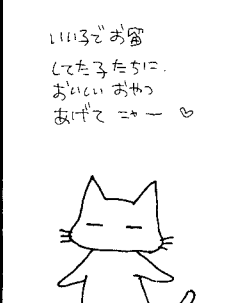 いい子でお留
してた子たちに.
おいしい おやつ
あげて ニャー ♡